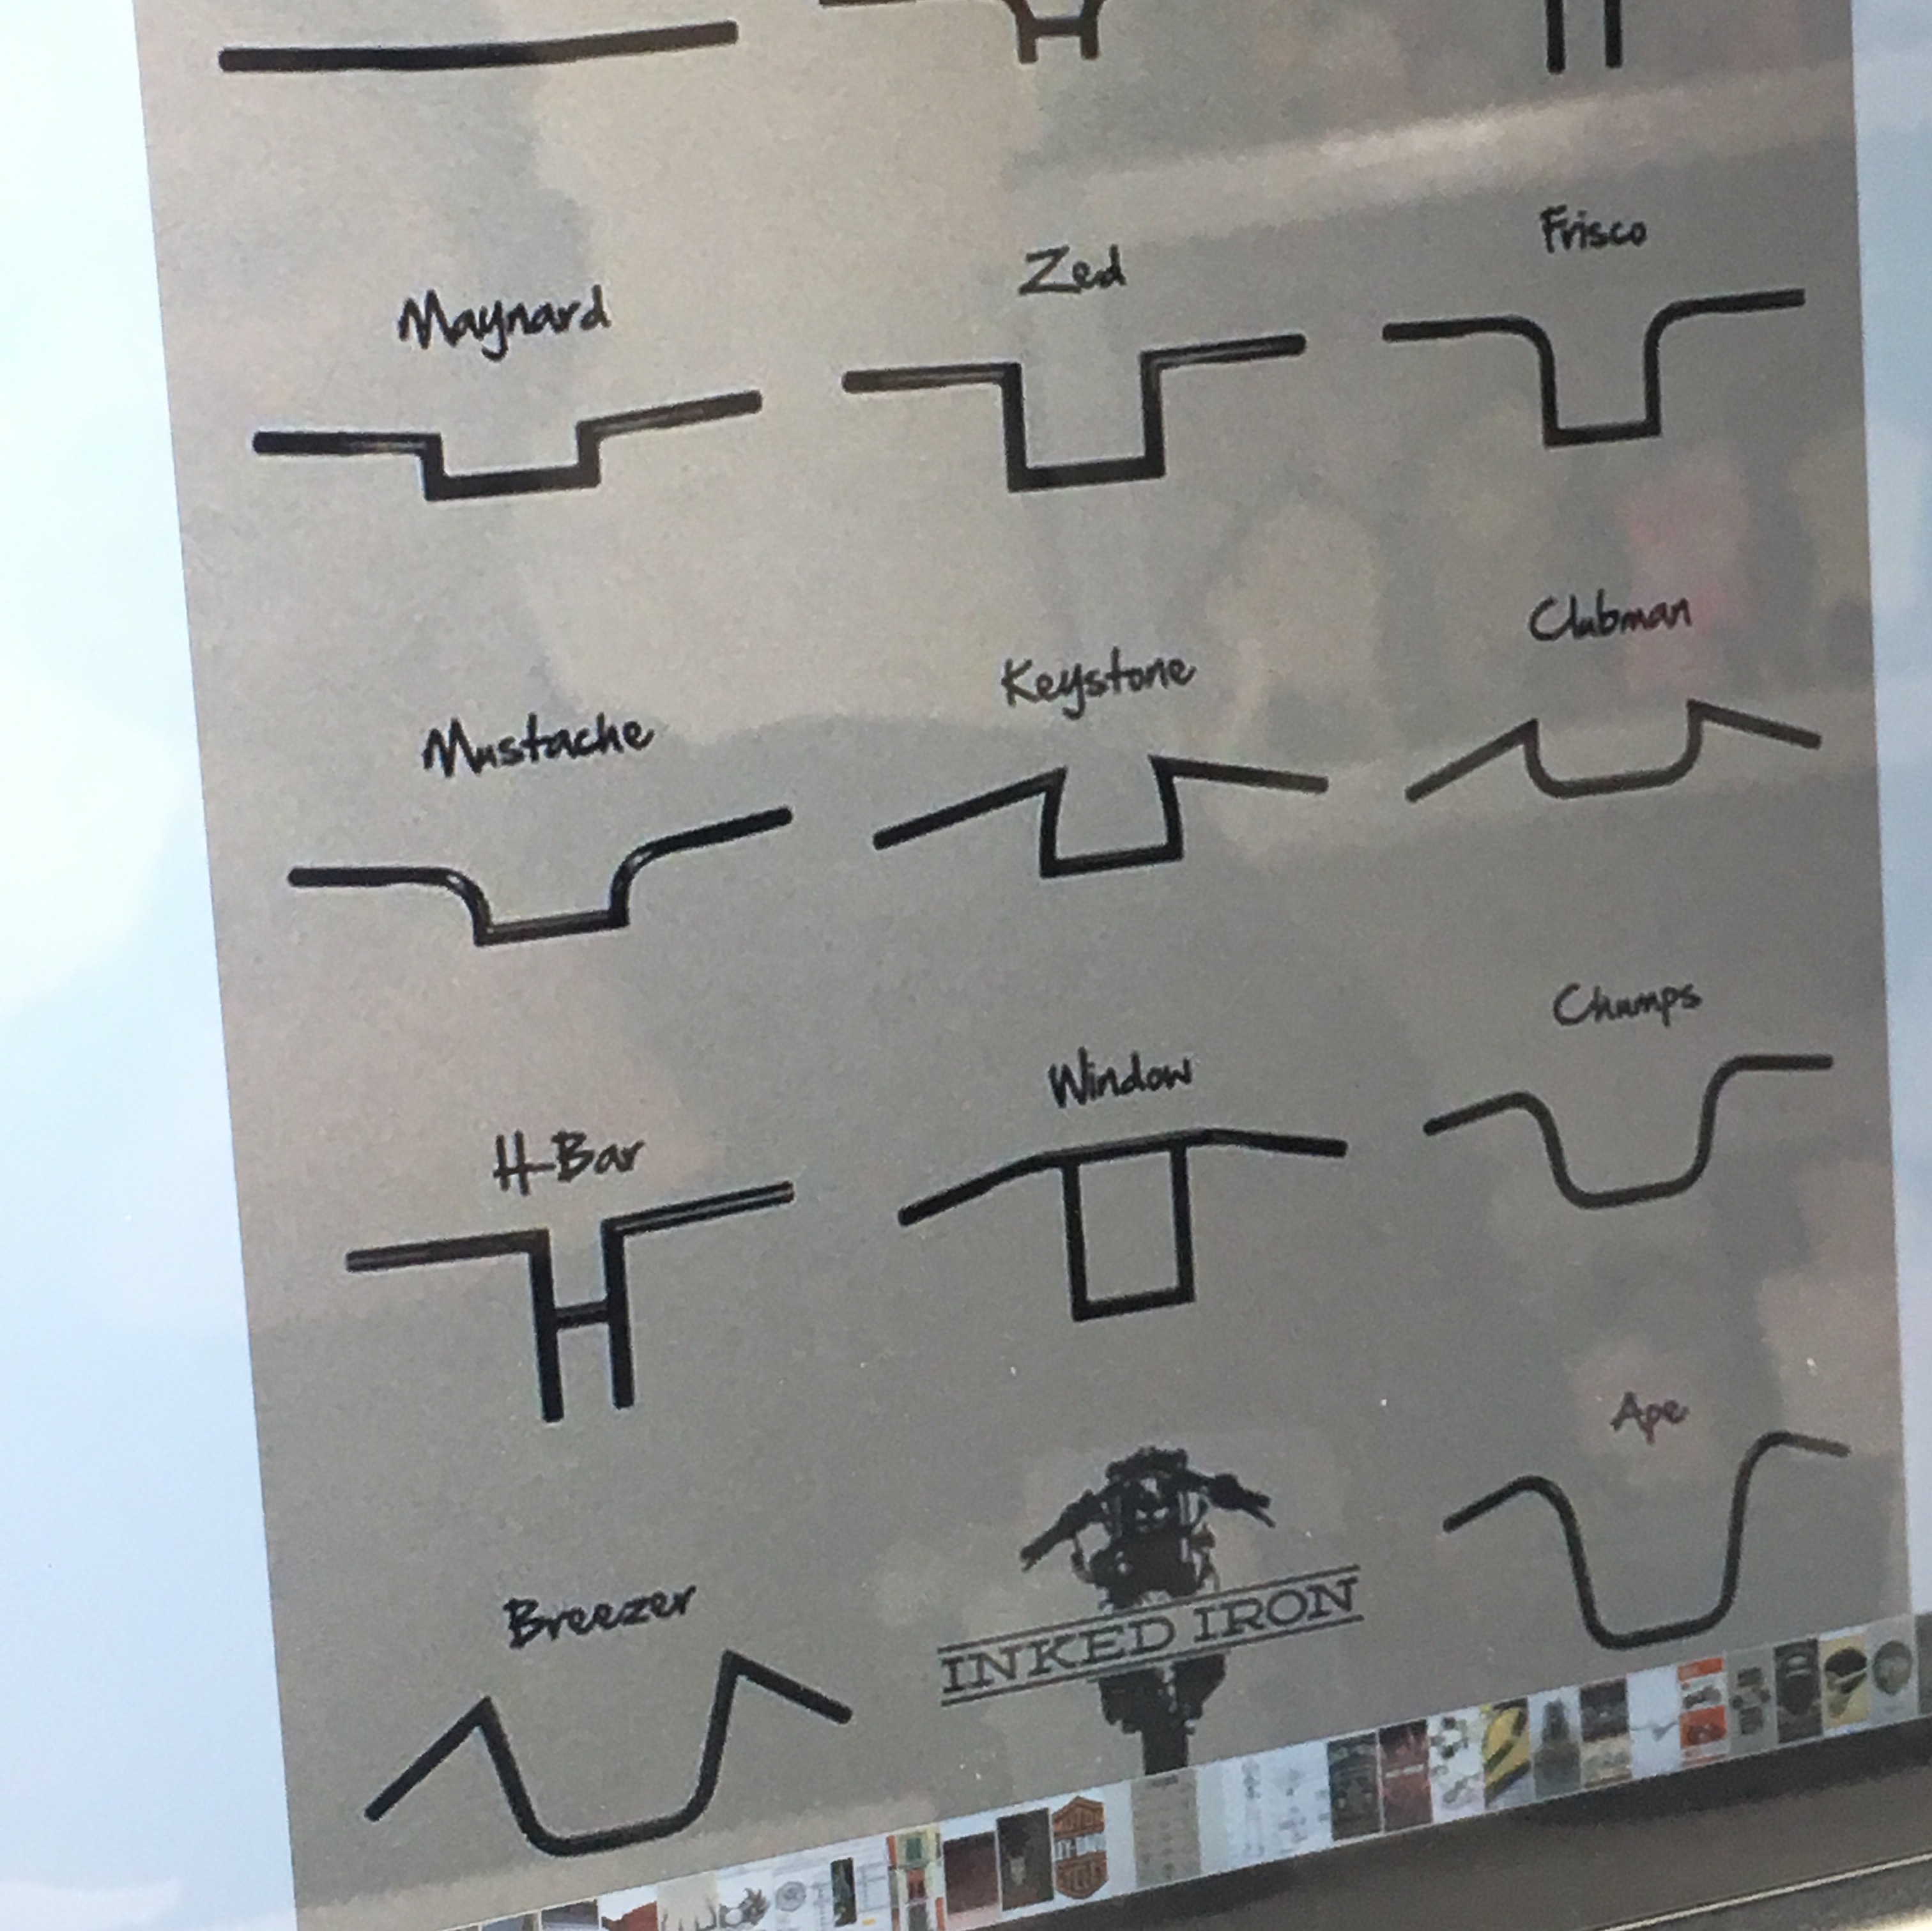 Maynard
Zed
Frisco
Mustache
Keystone
Clubman
H-Bar
Window
Chumps
Breezer
INKED IRON
Ape